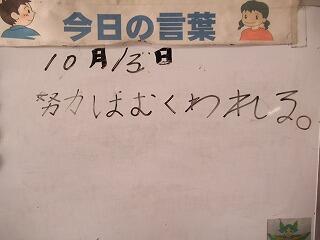 今日の言葉
10月13日
努力はむくわれる。